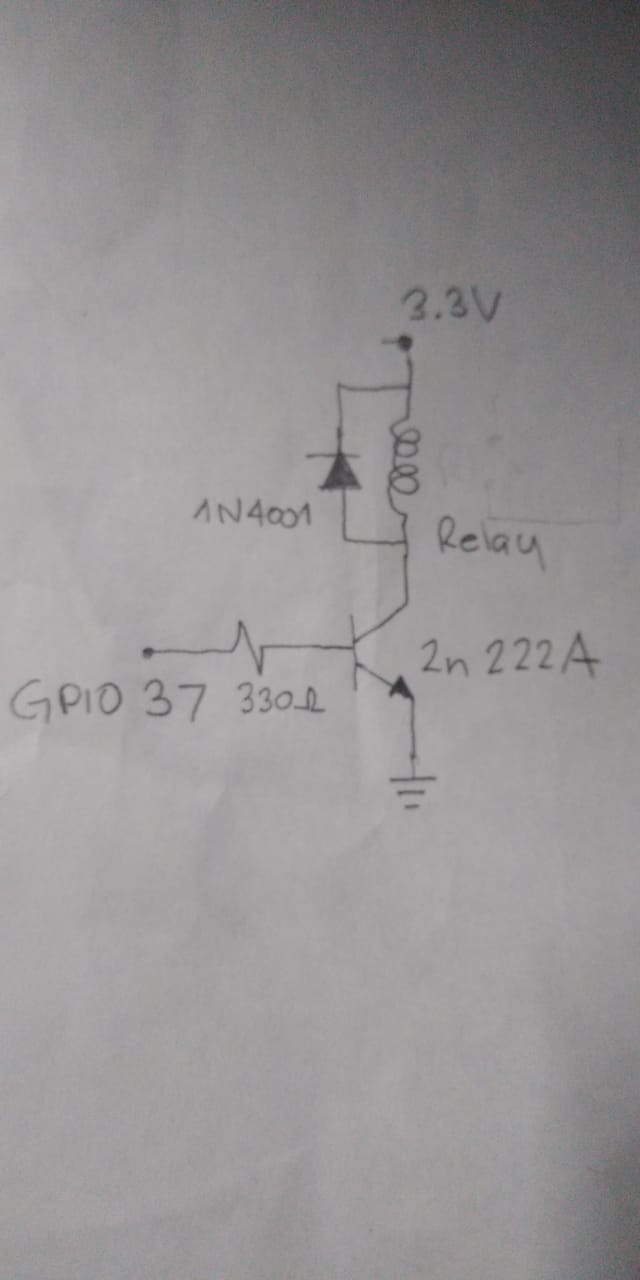 3.3V
1N4001
Relay
2n 222A
GPIO 37 330Ω